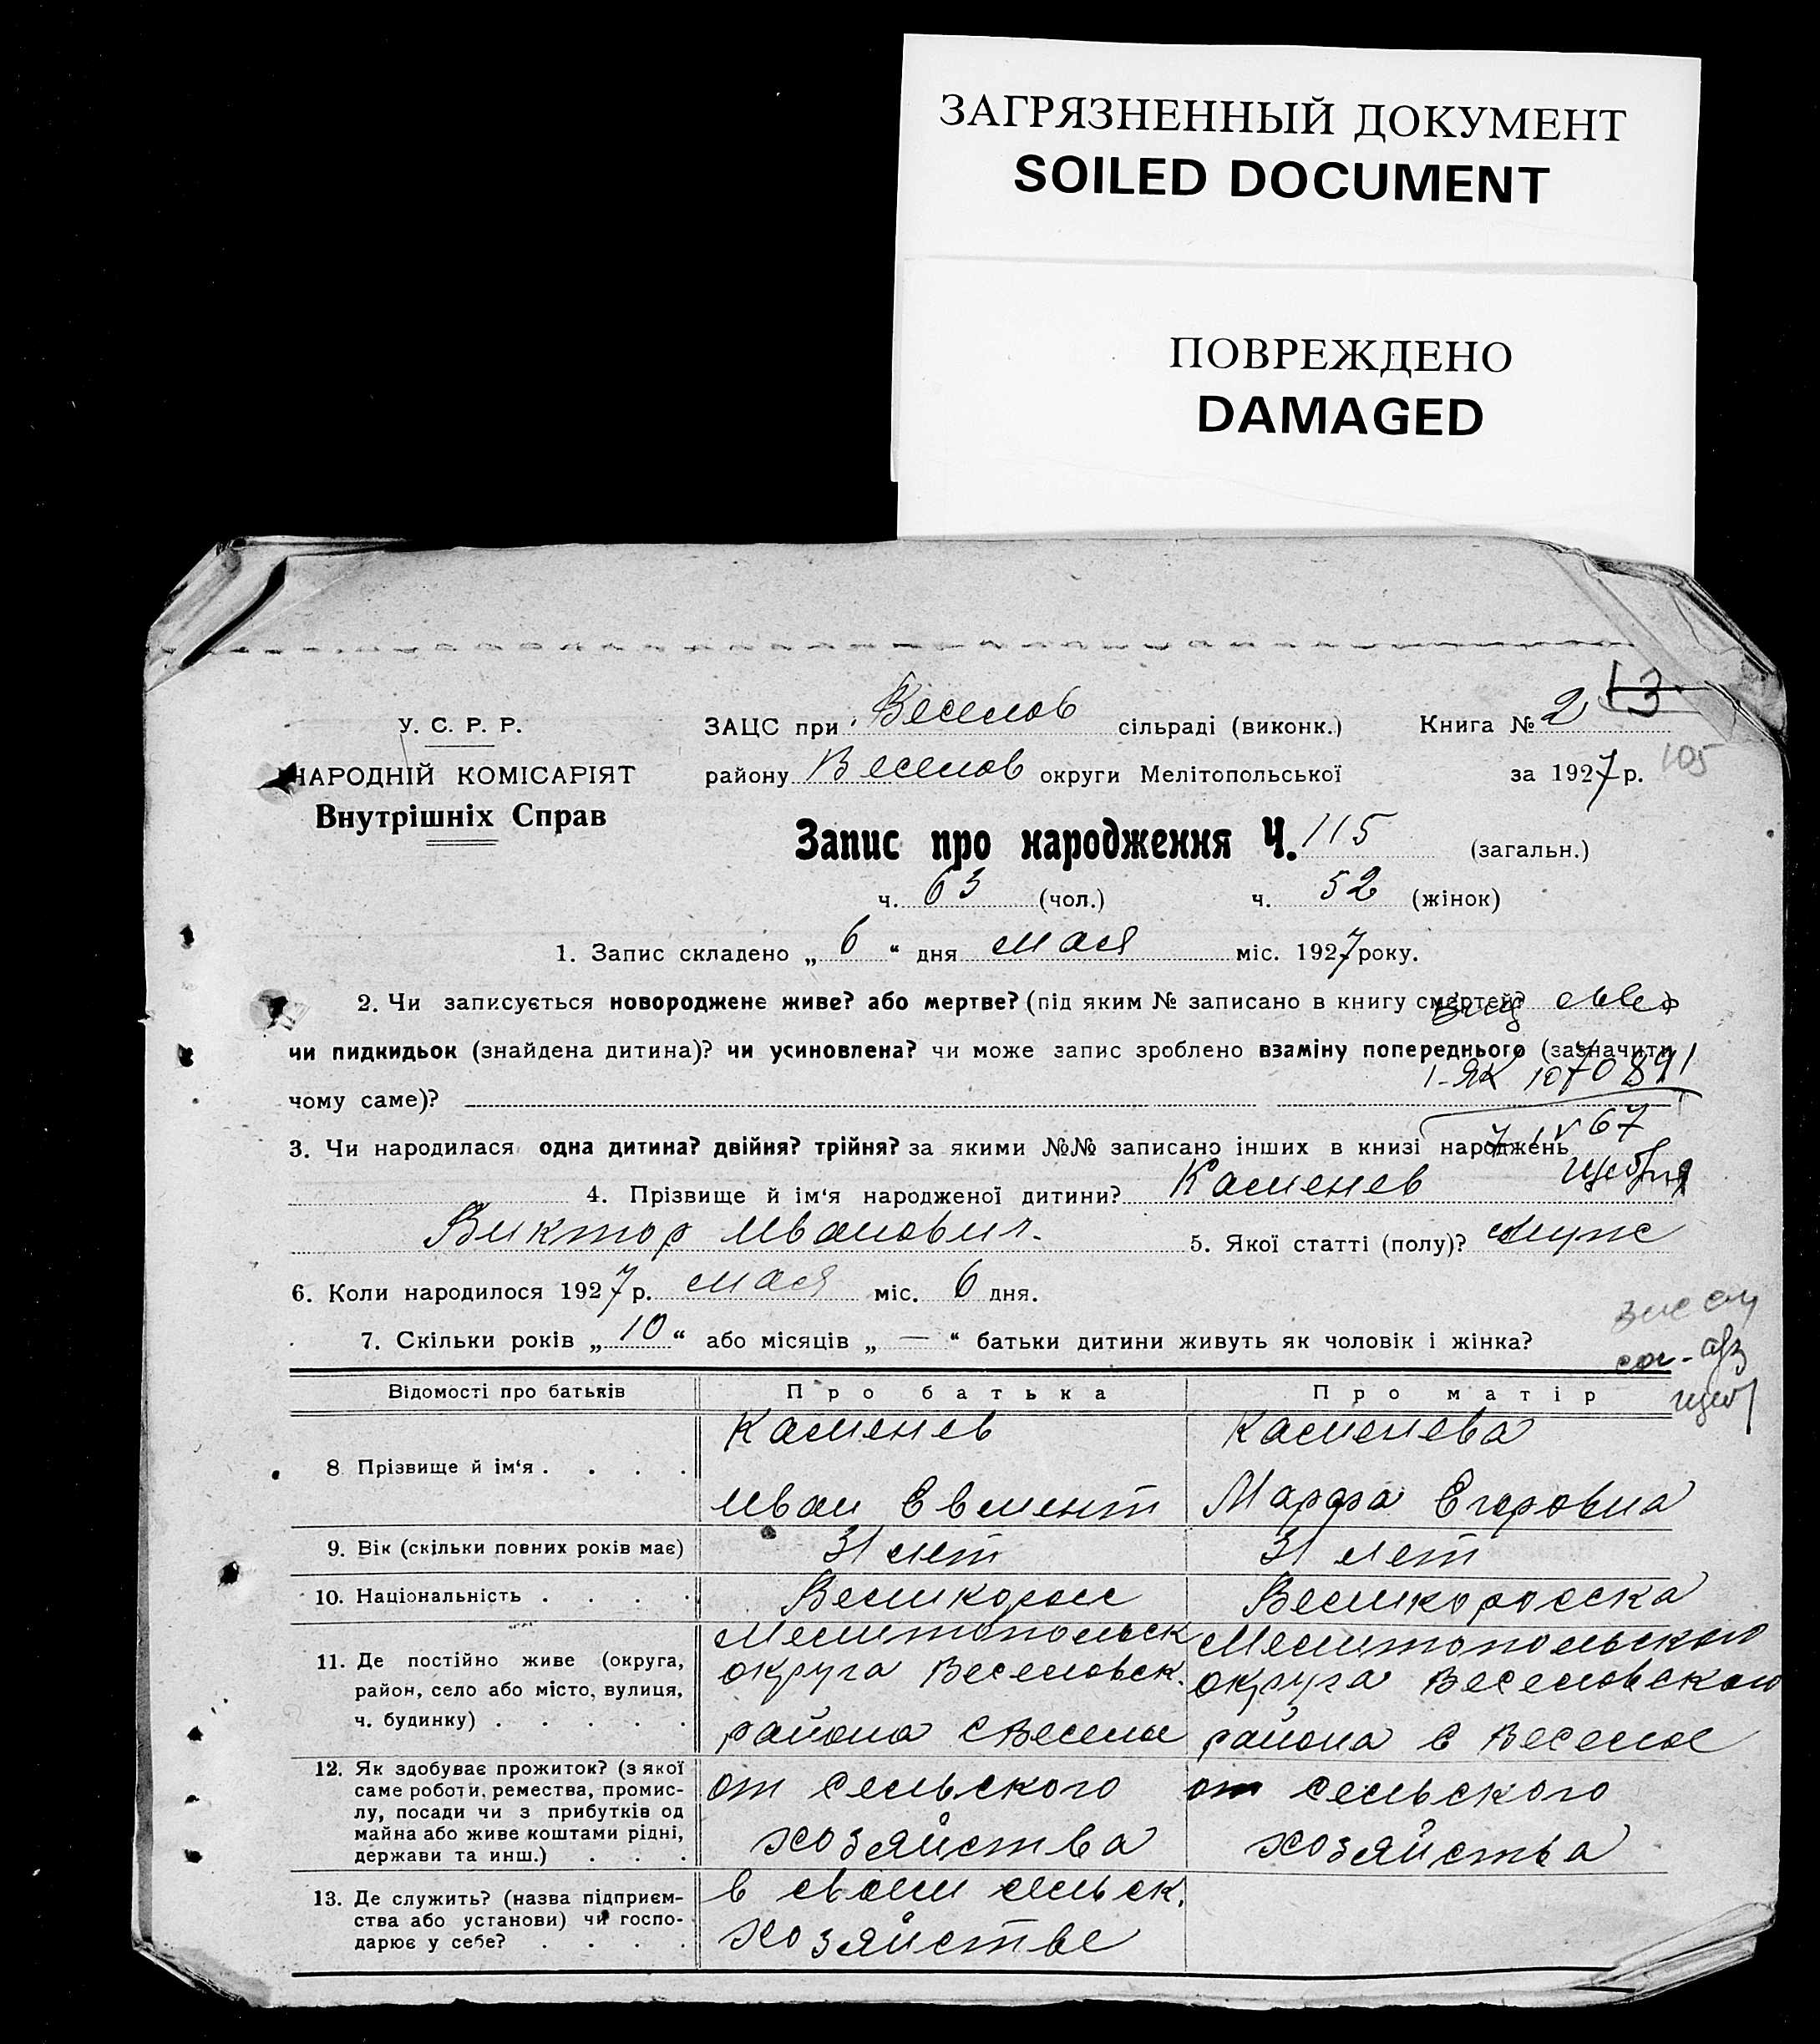 ЗАГРЯЗНЕННЫЙ ДОКУМЕНТ
SOILED DOCUMENT
ПОВРЕЖДЕНО
DAMAGED
13
У. С. Р. Р.
ЗАЦС при Веселов сільраді (виконк.) Книга № 2
105
НАРОДНІЙ КОМІСАРІЯТ
району Веселов округи Мелітопольської за 1927 р.
Внутрішніх Справ
Запис про народження Ч. 115 (загальн.)
ч. 63 (чол.) ч. 52 (жінок)
1. Запис складено „ 6 “ дня мая міс. 1927 року.
2. Чи записується новороджене живе? або мертве? (під яким № записано в книгу смертей?
чи пидкидьок (знайдена дитина)? чи усиновлена? чи може запис зроблено взаміну попереднього (зазначити
I-ЯК 1070891
чому саме)?
7 IV 67
3. Чи народилася одна дитина? двійня? трійня? за якими №№ записано інших в книзі народжень
4. Прізвище й ім‘я народженої дитини? Каменев
Виктор Иванович. 5. Якої статті (полу)? мужс
6. Коли народилося 1927 р. мая міс. 6 дня.
7. Скільки років „ 10 “ або місяців „ — “ батьки дитини живуть як чоловік і жінка?
Відомості про батьків Про батька Про матір
Каменев Каменева
8 Прізвище й ім‘я . . . .
Иван Евмент Марфа Егоровна
9. Вік (скільки повних років має) 31 лет 31 лет
10. Національність . . . . Великорос Великоросска
Мелитопольск Мелитопольского
11. Де постійно живе (округа, округа Веселовск. округа Веселовского
район, село або місто, вулиця,
ч. будинку) . . . . . района с Веселое района с Веселое
12. Як здобуває прожиток? (з якої
саме роботи, ремества, промис- от сельского от сельского
лу, посади чи з прибутків од
майна або живе коштами рідні, хозяйства хозяйства
держави та инш.) . . .
13. Де служить? (назва підприєм- в своем сельск.
ства або установи) чи госпо-
дарює у себе? . . . . хозяйстве